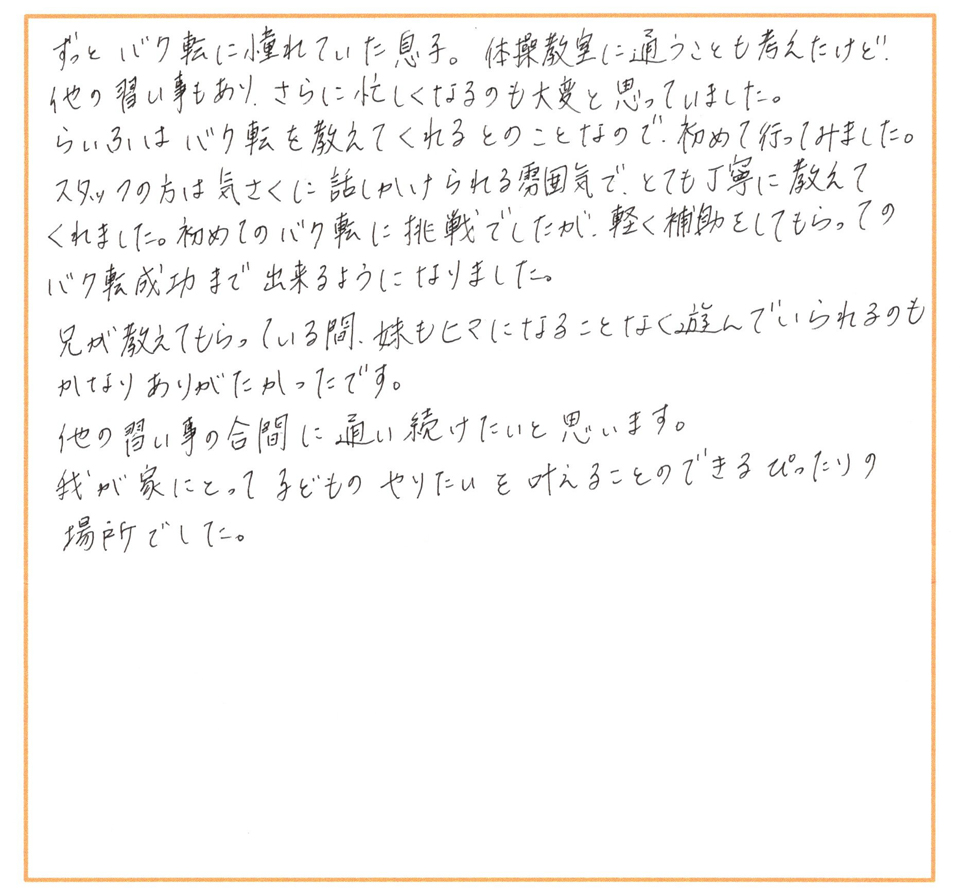 ずっとバク転に憧れていた息子。体操教室に通うことも考えたけど、
他の習い事もあり、さらに忙しくなるのも大変と思っていました。
らいふはバク転を教えてくれるとのことなので、初めて行ってみました。
スタッフの方は気さくに話しかけられる雰囲気で、とても丁寧に教えて
くれました。初めてのバク転に挑戦でしたが、軽く補助をしてもらっての
バク転成功まで出来るようになりました。
兄が教えてもらっている間、妹もヒマになることなく遊んでいられるのも
かなりありがたかったです。
他の習い事の合間に通い続けたいと思います。
我が家にとって子どものやりたいを叶えることのできるぴったりの
場所でした。